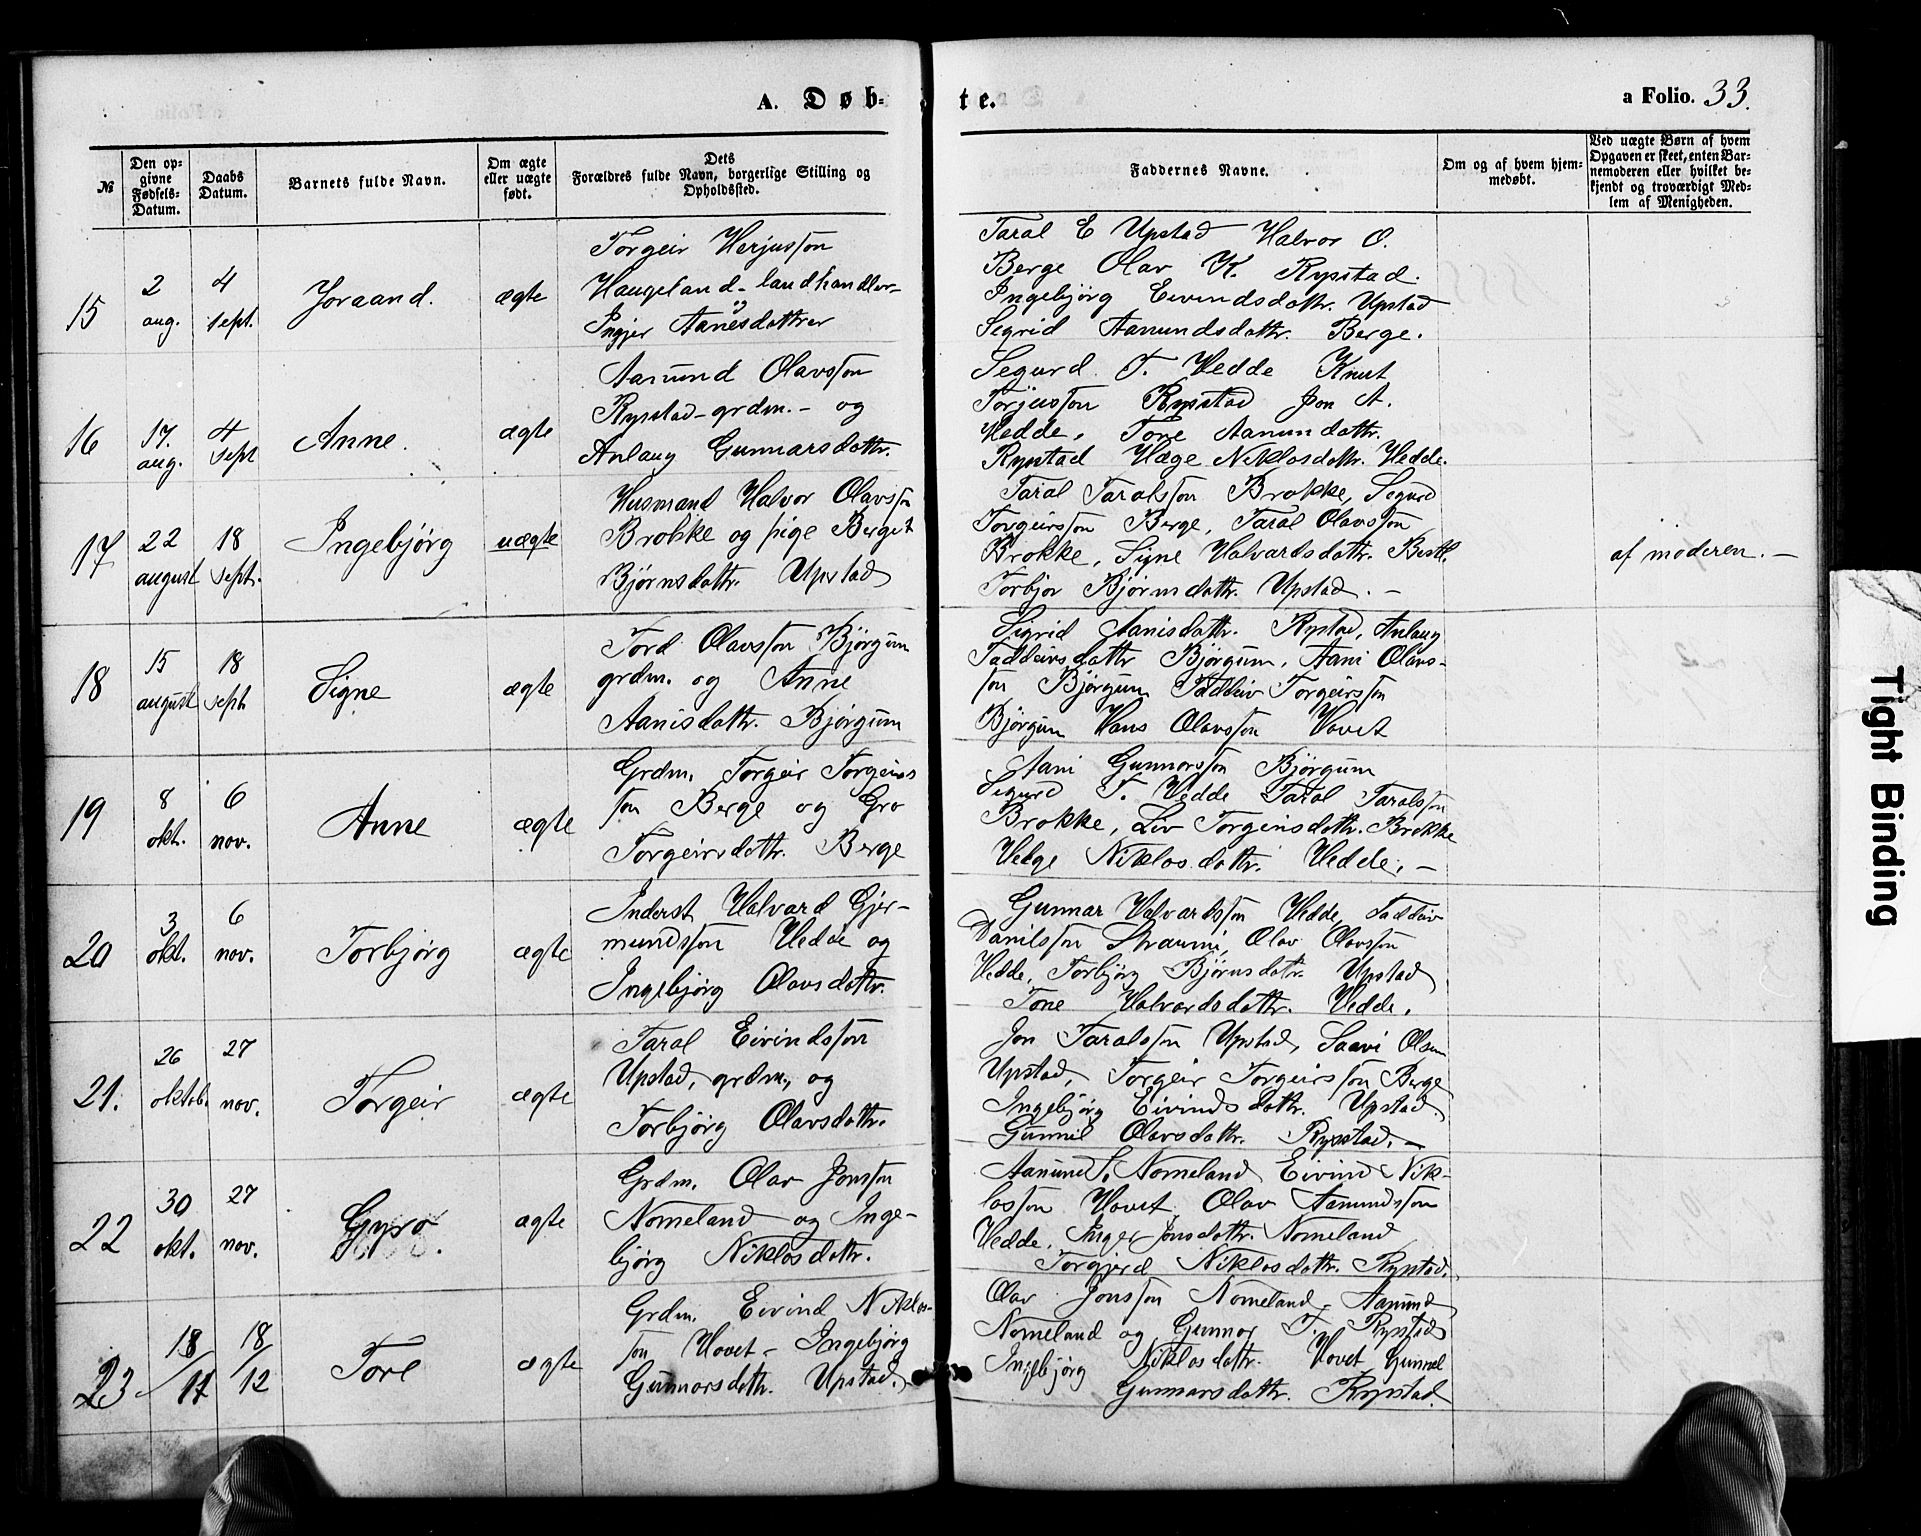 A. Døb-
te.
a Folio. 33.
№
Den op-
givne
Fødsels-
Datum.
Daabs
Datum.
Barnets fulde Navn.
Om ægte
eller uægte
født.
Dets
Forældres fulde Navn, borgerlige Stilling og
Opholdssted.
Faddernes Navne.
Om og af hvem hjem-
medøbt.
Ved uægte Børn af hvem
Opgaven er skeet, enten Bar-
nemoderen eller hvilket be-
kjendt og troværdigt Med-
lem af Menigheden.
15
2
aug.
4
sept.
Joraand.
ægte
Torgeir Herjusson
Haugeland - landhandler -
Ingjer Aanesdatter
Taral E Upstad Halvor O.
Berge Olav K. Rysstad.
Ingebjörg Eivindsdottr. Upstad
Sigrid Aamundsdottr. Berge.
16
17.
aug.
4
sept
Anne.
ægte
Aamund Olavsson
Rysstad - grdm. - og
Anlaug Gunnarsdottr.
Segurd. T. Hedde Knut
Torjusson Rysstad Jon A.
Hedde, Tone Aamundottr.
Rystad Hæge Niklosdottr. Hedde.
17
22
august
18
sept.
Ingebjørg
uægte
Husmand Halvor Olavsson
Brokke og pige Berget
Bjørnsdottr. Upstad
Taral Taralsson Brokke, Segurd
Torgeirsson Berge, Taral Olavsson
Brokke, Signe Halvardsdottr. Bestl.
Torbjor Bjørnsdottr. Upstad. -
af moderen. -
18
15
august
18
sept
Signe
ægte
Tord Olavsson Bjørgum
grdm. og Anne
Aanisdottr. Bjørgum
Sigrid Aanisdottr. Rystad, Anlaug
Taddeivsdottr Bjørgum, Aani Olavs-
son Bjørgum Taddeiv Torgeirsson
Bjørgum Hans Olavsson Hovet
19
8
okt.
6
nov.
Anne
ægte
Grdm. Torgeir Torgeirs
son Berge og Gro
Torgeirsdottr. Berge
Aani Gunnarsson Bjørgum
Segurd T. Hedde Taral Taralsson
Brokke, Liv Torgeirsdottr. Brokke
Helge Niklosdottr. Hedde. -
20
3
okt.
6
nov.
Torbjørg
ægte
Inderst Halvard Gjer-
mundsson Hedde og
Ingebjørg Olavsdottr.
Gunnar Halvardsson Hedde, Taddeiv
Danilsson Straumi, Olav Olavsson
Hedde, Torbjørg Bjørnsdottr. Upstad
Tone Halvardsdottr. Hedde.
21.
26
oktob.
27
nov.
Torgeir
ægte
Taral Eivindsson
Upstad, grdm., og
Torbjörg Olavsdottr.
Jon Taralsson Upstad, Saavi Olsen
Upstad, Torgeir Torgeirsson Berge
Ingebjörg Eivindsdottr. Upstad
Gunnil Olavsdottr. Rysstad. -
22
30
okt.
27
nov.
Gyro.
ægte
Grdm. Olav Jonsson
Nomeland og Inge-
björg Niklosdottr.
Aamund S. Nomeland Eivind Nik-
losson Hovet Olav Aamundsson
Hedde, Inger Jonsdottr. Nomeland
Torgjerd Niklosdottr. Rystad.
23
18/11
18/12
Tore
ægte
Grdm. Eivind Niklos-
son Hovet - Ingebjörg
Gunnarsdottr. Upstad.
Olav Jonsson Nomeland, Aamund
Nomeland og Gunnar T. Rysstad
Ingebjörg Niklosdottr. Hovet Gunnil
Gunnarsdottr. Rysstad.
Tight Binding